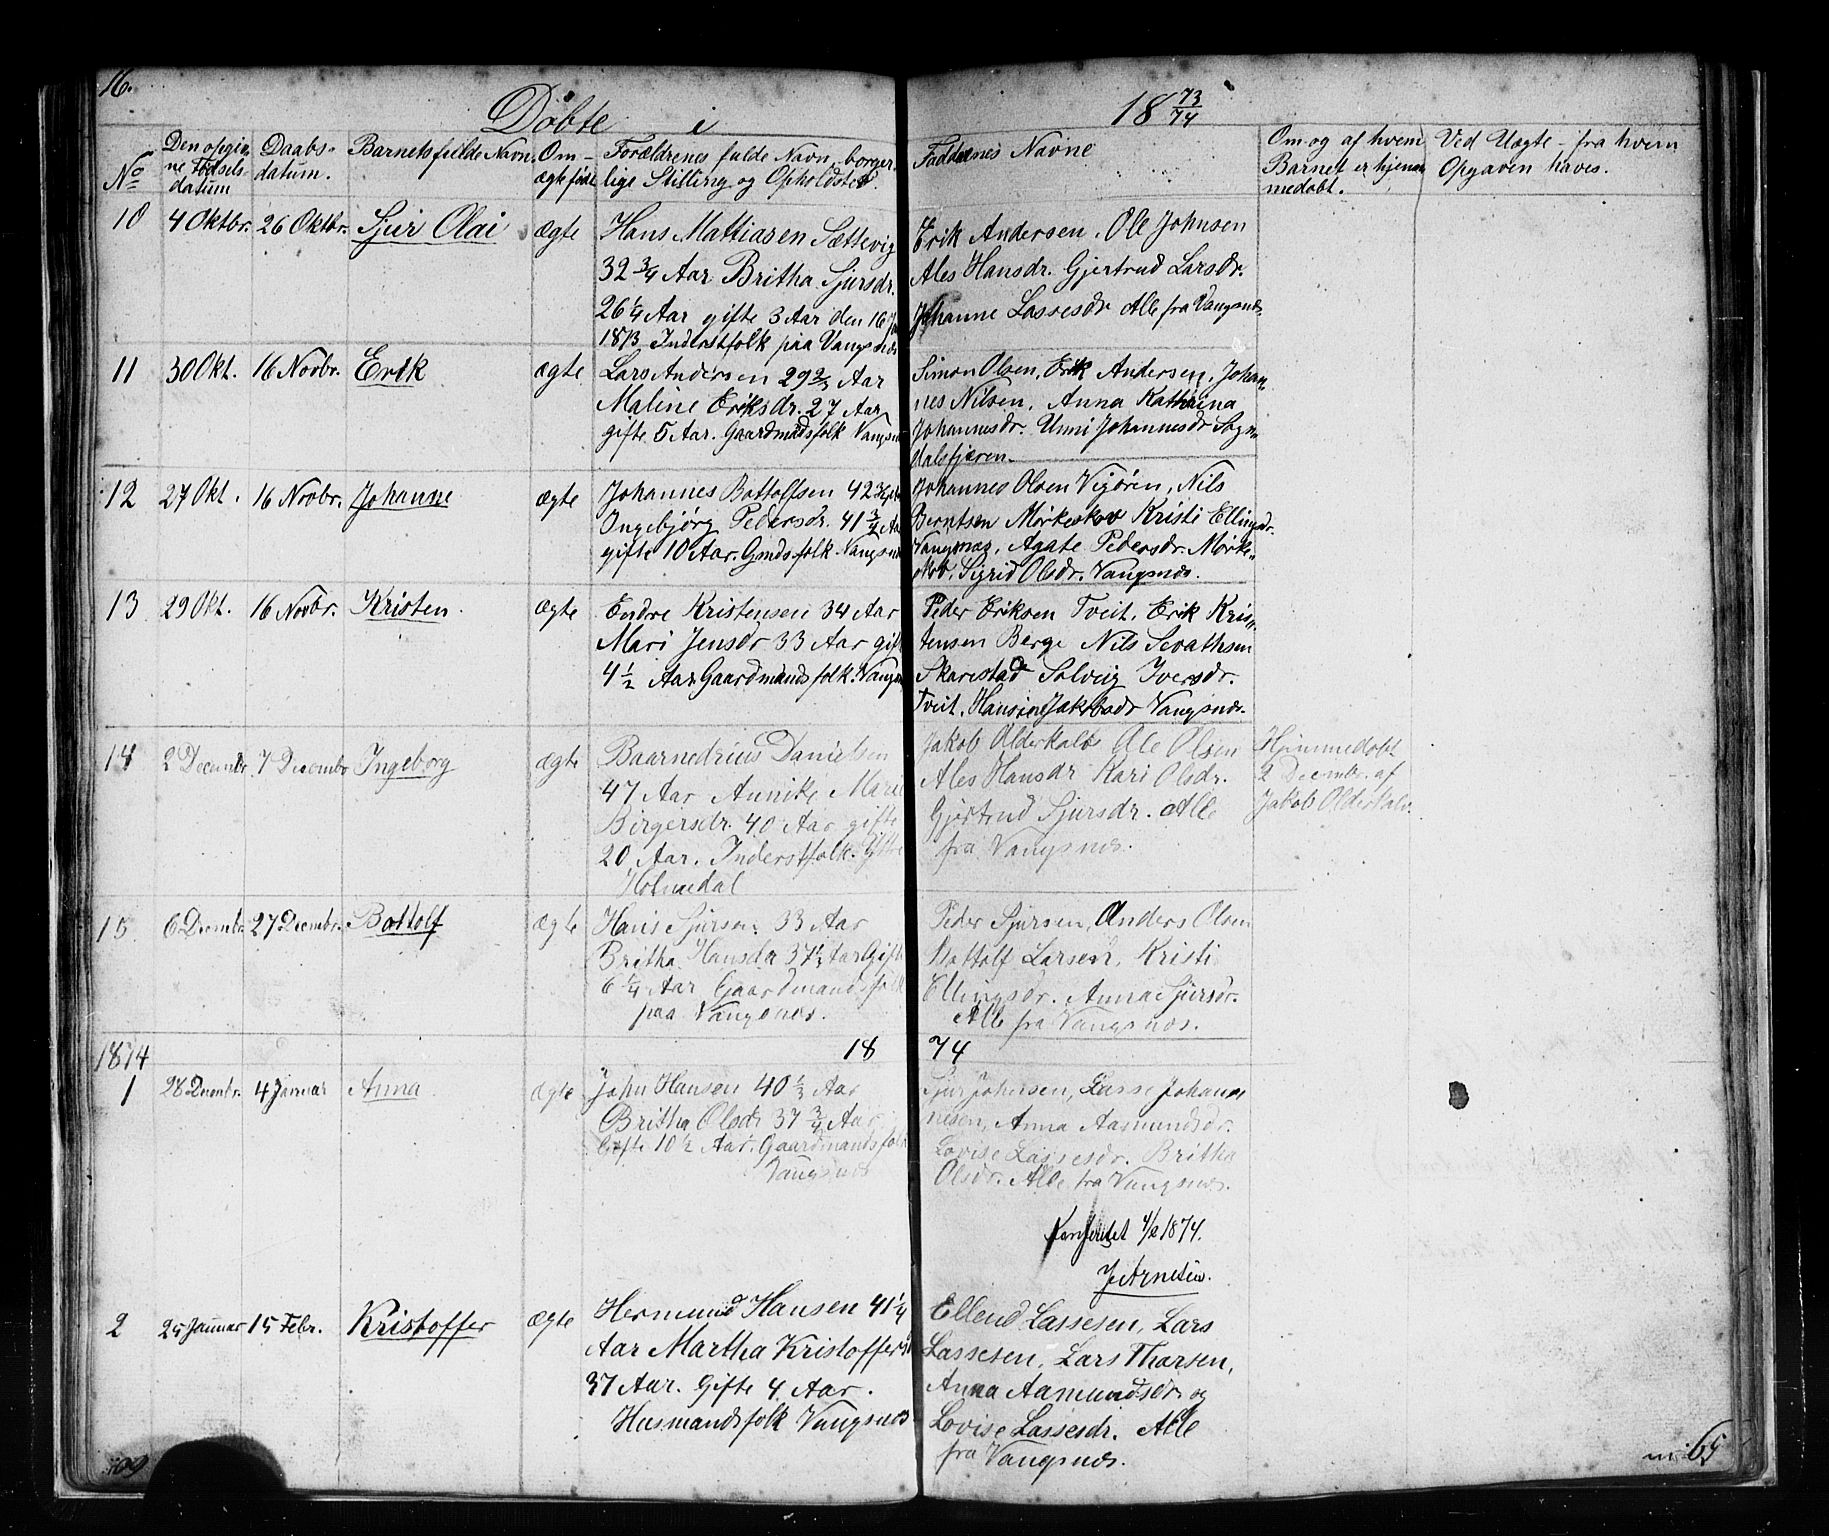 16.
Döbte i 18 73/74
No
Den opgivne Födselsdatum
Daabsdatum.
Barnets fulde Navn.
Om ægte föde
Forældrenes fulde Navn, borgerlige Stilling og Opholdsted.
Faddernes Navne
Om og af hvem Barnet er hjemmedöbt.
Ved Uægte fra hvem Opgaven haves.
10 4 Oktbr. 26 Oktbr. Sjur Olai ægte
Hans Mattiasen Sættevig
32 3/4 Aar Britha Sjursdr.
26 1/4 Aar gifte 3 Aar den 16
1873 Inderstfolk paa Vangsnæs
Erik Andersen. Ole Johnsen
Ales Hansdr. Gjertrud Larsdr.
Johanne Lassesdr Alle fra Vangsnæs
11 30 Okt. 16 Novbr. Erik ægte
Lars Andersen 29 2/3 Aar
Maline Eriksdr. 27 Aar
gifte 5 Aar. Gaardmdsfolk Vangsnæs
Simon Olsen, Erik Andersen, Johan„
nes Nilsen, Anna Kathrina
Johannesdr. Unni Johannesdr Sogn„
dalsfjæren.
12 27 Okt. 16 Novbr. Johanne ægte
Johannes Bottolfsen 42
Ingebjörg Pedersdr. 41 3/4 Aar
gifte 10 Aar. Gmdsfolk Vangsnæs
Johannes Olsen Vigören, Nils
Berntsen Mörkeskov Kristi Ellingsdr.
Vangsnæs, Agate Pedersdr. Mörke„
skov. Sigrid Olsdr. Vangsnæs.
13 29 Okt. 16 Novbr. Kristen. ægte
Endre Kristensen 34 Aar
Mari Jensdr 33 Aar gift
4 1/2 Aar Gaardmandsfolk. Vangsnæs
Peder Eriksen Tveit. Erik Kris„
tensen Berge Nils Sevathsen
Skarestad Solveig Iversdr.
Tveit. Hansine Jakobsdr Vangsnæs.
14 2 Decembr 7 Decembr Ingeborg ægte
Baarnedrius Danielsen
47 Aar Annike Marie
Birgersdr. 40 Aar gifte
20 Aar. Inderstfolk. Ytte
Holmedal
Jakob Olderkalv Ole Olsen
Ales Hansdr Kari Olsdr.
Gjertrud Sjursdr. Alle
fra Vangsnæs.
Hjemmedöbt
2 Decembr. af
Jakob Olderkalv.
15 6 Decembr. 27 Decembr. Bottolf ægte
Hans Sjursen 33 Aar
Britha Hansdr 37 1/2 Aar Gifte
6 1/4 Aar Gaardmandsfolk
paa Vangsnæs.
Peder Sjursen, Anders Olsen
Bottolf Larsen, Kristi
Ellingsdr. Anna Sjursdr.
Alle fra Vangsnæs.
1874 18 74
1 28 Decmbr. 4 Januar Anna ægte
John Hansen 40 1/2 Aar
Britha Olsdr 37 3/4 Aar
Gifte 10 1/2 Aar. Gaardmandsfolk
Vangsnæs
Sjur Johnsen, Lasse Johan„
nesen, Anna Aasmundsdr.
Lovise Lassesdr. Britha
Olsdr. Alle fra Vangsnæs.
Konfereret 4/2 1874.
J Arnesen.
2 25 Januar 15 Febr. Kristoffer ægte
Hermund Hansen 41 1/4
Aar Martha Kristoffersd
37 Aar. Gifte 4 Aar.
Husmandsfolk Vangsnæs
Ellend Lassesen, Lars
Lassesen, Lars Thorsen,
Anna Aamundsdr og
Lovise Lassesdr. Alle
fra Vangsnæs.
109
65